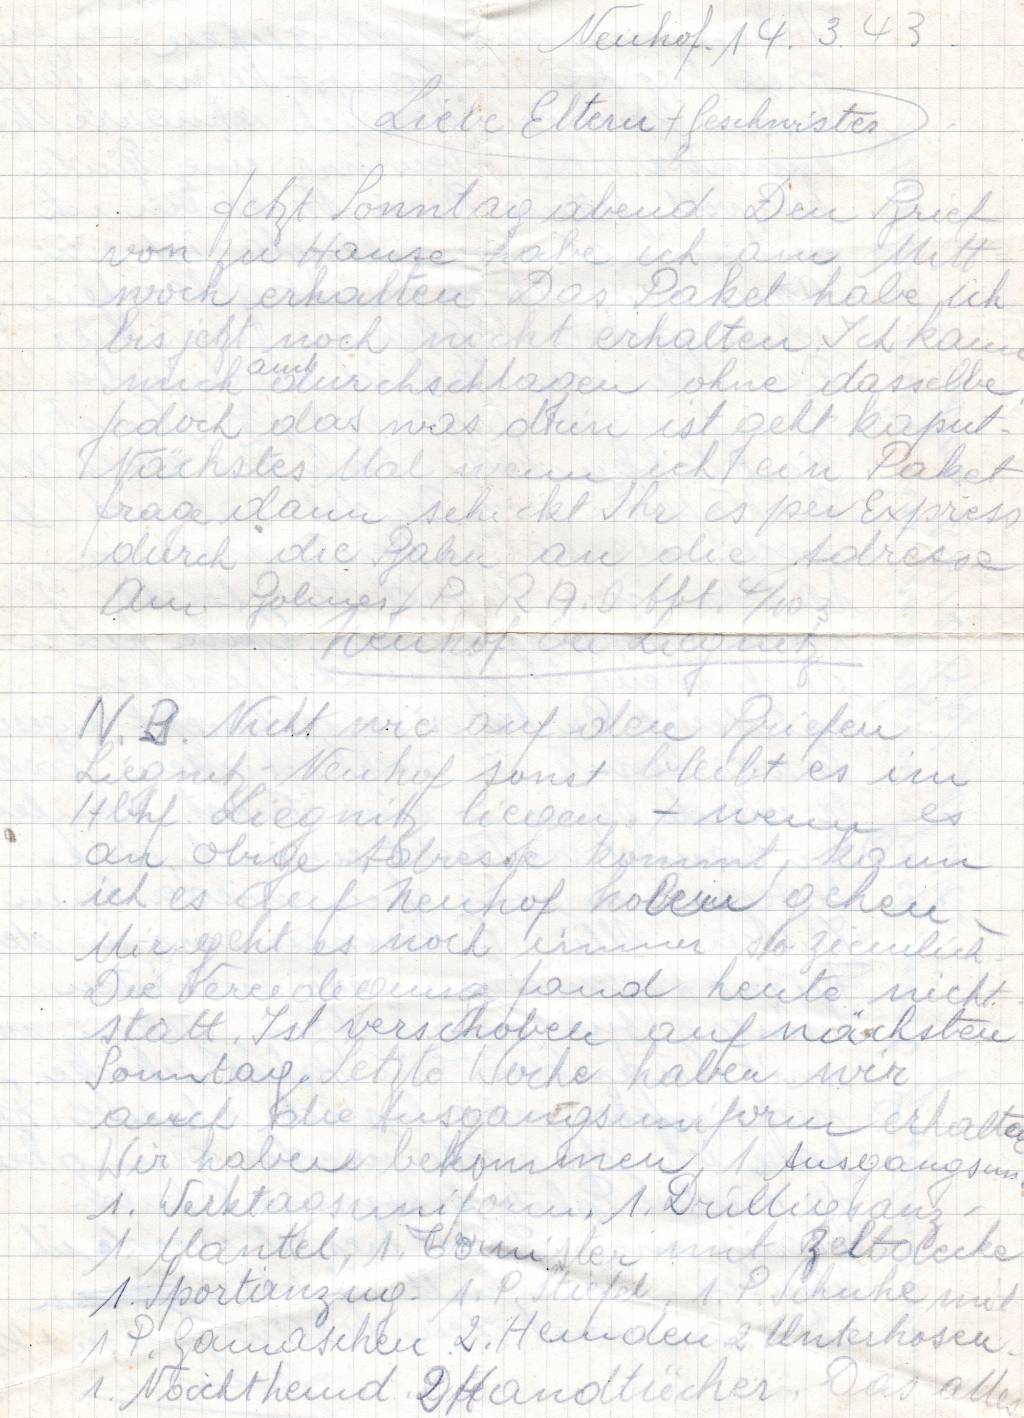 Neuhof. 14. 3. 43.
Liebe Eltern + Geschwister
Jetzt Sonntag abend. Den Brief
von zu Hause habe ich am Mitt-
woch erhalten. Das Paket habe ich
bis jetzt noch nicht erhalten. Ich kann
mich auch durchschlagen ohne dasselbe,
jedoch das was drin ist geht kaput.
Nächstes Mal wenn ich ein Paket
frage dann schickt Ihr es per Express
durch die Bahn an die Adresse
Am. P. R.A.D. Abt. 4/103
Neuhof bei Liegnitz
N.B. Nicht wie auf den Briefen
Liegnitz-Neuhof sonst bleibt es im
Hbhf Liegnitz liegen + wenn es
an obige Adresse kommt, kann
ich es auf Neuhof holen gehen.
Mir geht es noch immer so ziemlich.
Die Vereidigung fand heute nicht
statt. Ist verschoben auf nächsten
Sonntag. Letzte Woche haben wir
auch die Ausgangsuniform erhalten
Wir haben bekommen, 1 Ausgangsun.
1. Werktagsuniform, 1. Drillichanz.
1 Mantel, 1. Tornister mit Zeltdecke
1. Sportanzug. 1. P. Stiefel, 1. P. Schuhe mit
1. P. Gamaschen 2. Hemden 2 Unterhosen.
1. Nachthemd. 2 Handtücher. Das alles